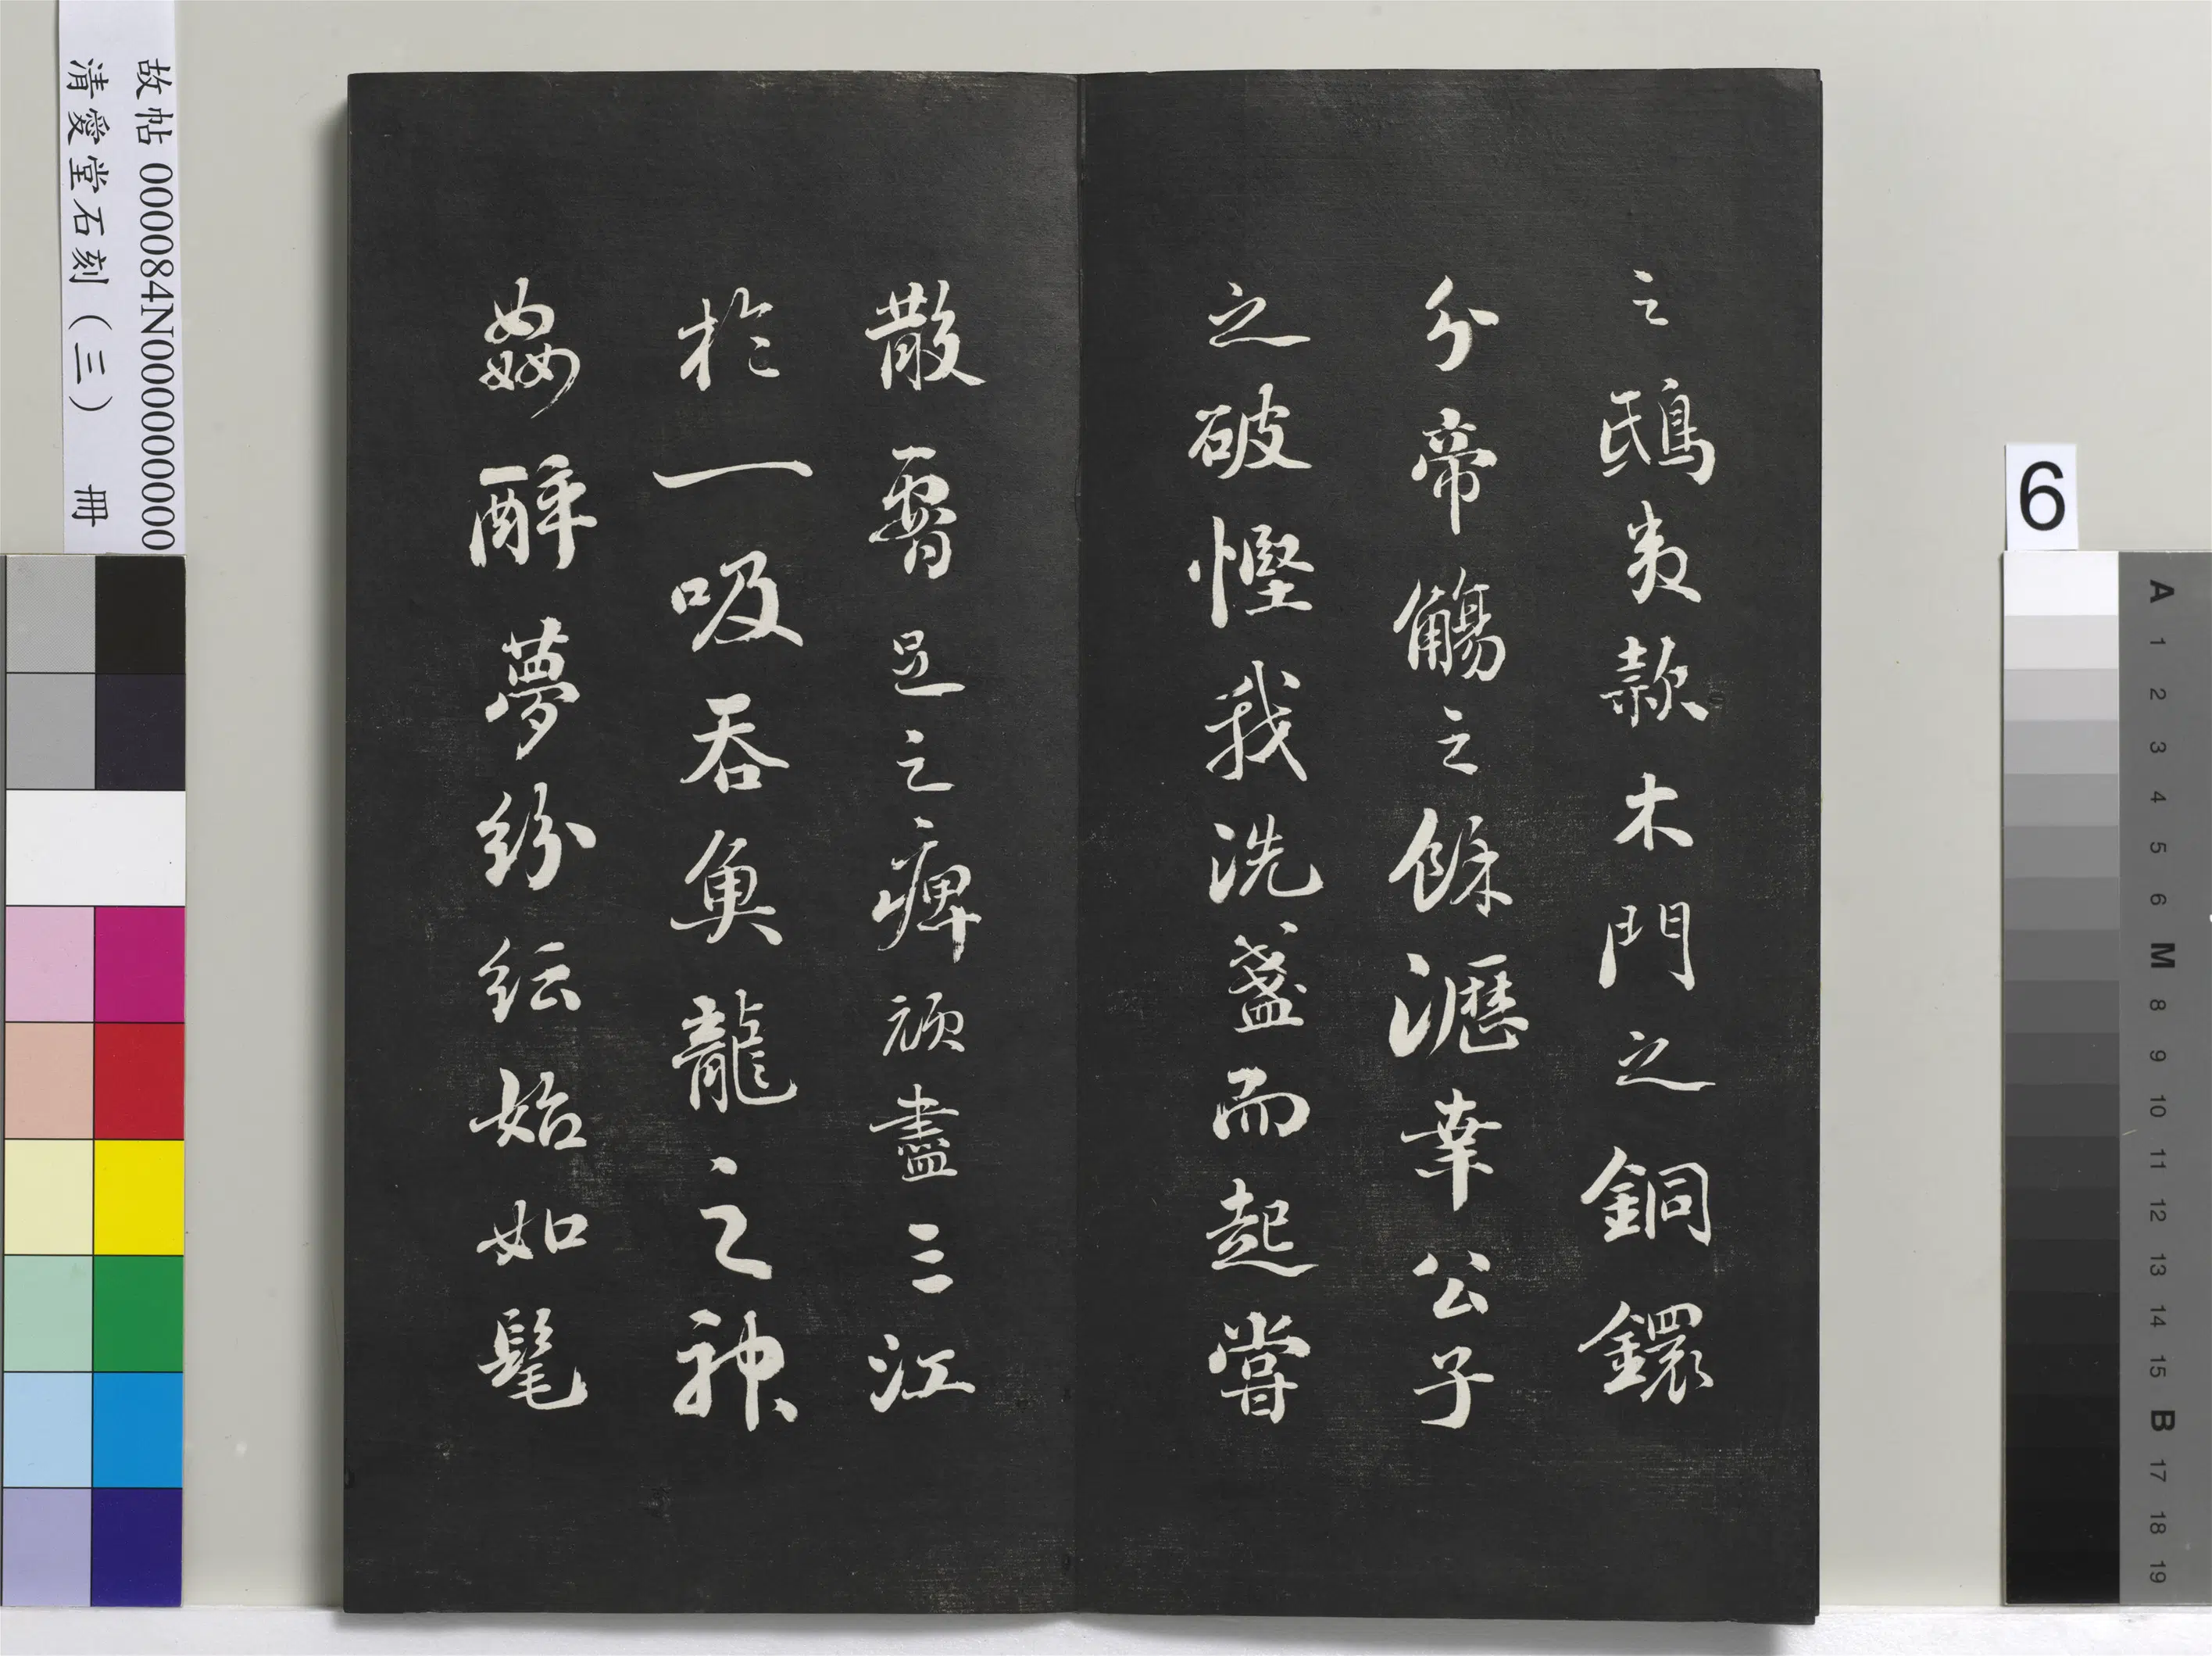 之鴟夷款木門之銅鐶
分帝觴之餘瀝幸公子
之破慳我洗盞而起嘗
散腰足之痹頑盡三江
於一吸吞魚龍之神
姦醉夢紛紜始如髦
故帖 000084N000000000
清愛堂石刻（三） 冊
6
A 1 2 3 4 5 6 M 8 9 10 11 12 13 14 15 B 17 18 19